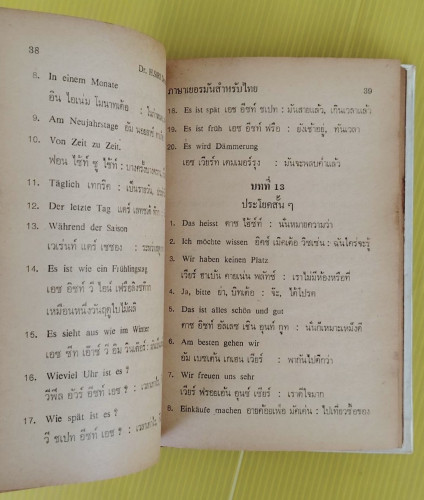 38
8. In einem Monate
อิน ไอเนม โมนาทเต้อ :
9. Am Neujahrstage
10. Von Zeit zu Zeit.
ฟอน ไซ้ท์ ซู ไซ้ท์ :
11. Täglich เทกริค :
12. Der letzte Tag
13. Während der Saison
14. Es ist wie ein Frühlingstag
เอส อิสท์ วี ไอน์
เหมือนหนึ่งวันฤดูใบไม้ผลิ
15. Es sieht aus wie im Winter
16. Wieviel Uhr ist es ?
17. Wie spät ist es ?
ภาษาเยอรมันสำหรับไทย
39
18. Es ist spät เอช อีซท์ ชเปท : มันสายแล้ว, เกินเวลาแล้ว
19. Es ist früh เอช อีซท์ ฟรือ : ยังเช้าอยู่, ทันเวลา
20. Es wird Dämmerung
เอช เวียร์ท เดมเมอร์รุง : มันจะพลบค่ำแล้ว
บทที่ 13
ประโยคสั้น ๆ
1. Das heisst ดาซ ไฮ้ซท์ : นั่นหมายความว่า
2. Ich möchte wissen อิคช์ เม้คเต้อ วิซเซ่น : ฉันใคร่จะรู้
3. Wir haben keinen Platz
เวียร์ ฮาเบ้น คายเน่น พลัทซ์ : เราไม่มีห้องหรือที่
4. Ja, bitte ย่า, บิทเต้อ : จ๊ะ, ได้โปรด
5. Das ist alles schön und gut
ดาซ อีซท์ อัลเลซ เชิน อุนท์ กูท : นั่นก็เหมาะเหม็งดี
6. Am besten gehen wir
อัม เบซเต้น เกเฮน เวียร์ : พากันไปดีกว่า
7. Wir freuen uns sehr
เวียร์ ฟรอยเอ้น อุนซ์ เซียร์ : เราดีใจมาก
8. Einkäufe machen อายค้อยเฟ่อ มัคเค่น : ไปเที่ยวซื้อของ